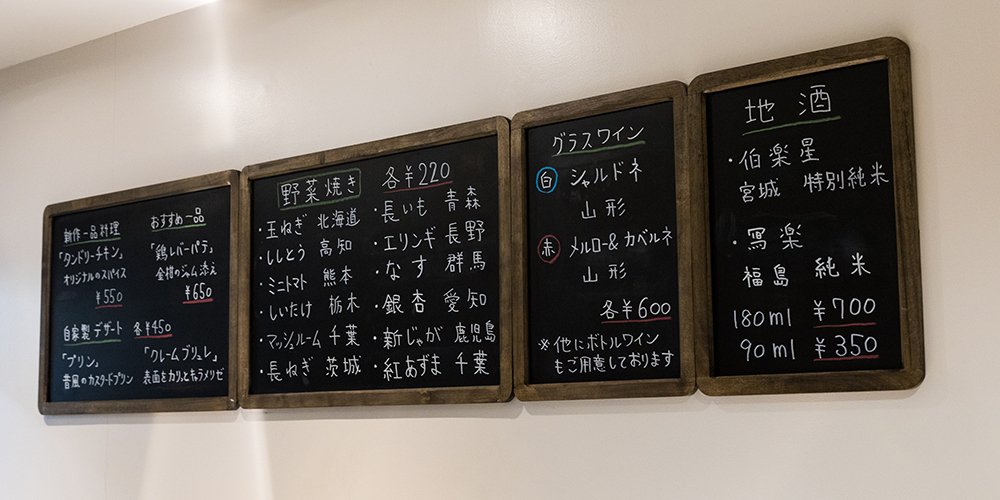 新作一品料理
「タンドリーチキン」
オリジナルのスパイス
¥550
おすすめ一品
「鶏レバーパテ」
金柑のジャム添え
¥650
自家製デザート 各¥450
「プリン」
昔風のカスタードプリン
「クレームブリュレ」
表面をカリッとキャラメリゼ
野菜焼き 各¥220
・玉ねぎ 北海道
・ししとう 高知
・ミニトマト 熊本
・しいたけ 栃木
・マッシュルーム 千葉
・長ねぎ 茨城
・長いも 青森
・エリンギ 長野
・なす 群馬
・銀杏 愛知
・新じゃが 鹿児島
・紅あずま 千葉
グラスワイン
白 シャルドネ
山形
赤 メルロー&カベルネ
山形
各¥600
※他にボトルワイン
もご用意しております
地酒
・伯楽星
宮城 特別純米
・冩楽
福島 純米
180ml ¥700
90ml ¥350